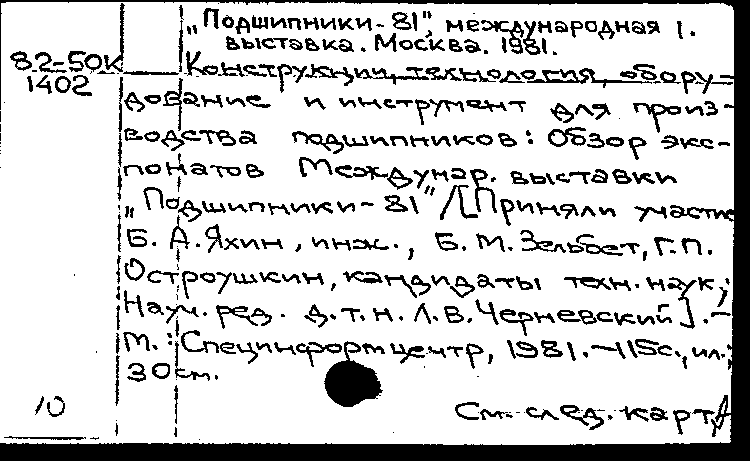 „Подшипники-81", международная 1.
выставка. Москва. 1981.
82-50К
1402
Конструкции, технология, обору-
дование и инструмент для произ-
водства подшипников: Обзор экс-
понатов Междунар. выставки
„Подшипники-81"/[Приняли участие
Б. А. Яхин, инж., Б. М. Зельбет, Г. П.
Остроушкин, кандидаты техн. наук;
Науч. ред. д. т. н. Л. В. Черневский]. -
М. : Специнформцентр, 1981. - 115с., ил.;
30 см.
10
См. след. карт.